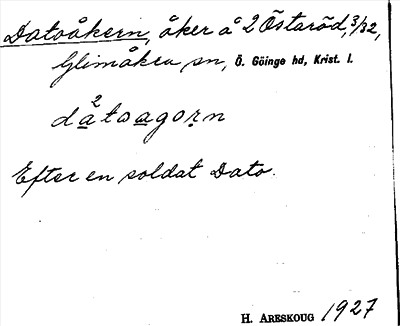 Datoåkern, åker å 2 Östaröd, 3/32,
Glimåkra sn, Ö. Göinge hd, Krist. l.
da²toagoṛn
Efter en soldat Dato.
H. ARESKOUG 1927